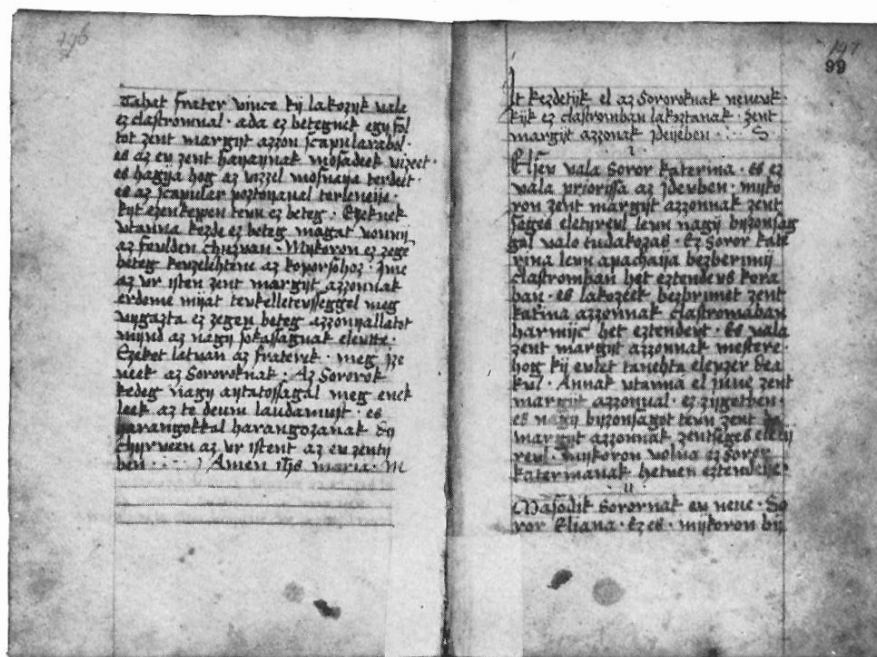 196
Tahat frater vince kij lakozijk vala
ez clastromnal · ada ez betegnek egij fol
tot zent margijt azzon scapularabol ·
es az eu zent hayaynak mosadeek vizeet ·
es hagija hog az vizzel mosneija terdeit ·
es az scapuler poztoyaual terleneije ·
kijt ezenkeppen teun ez beteg · Ezeknek
vtanna kezde ez beteg magat vonnij
az feulden chuzvan · Mijkoron ez zege
beteg keuzelehtene az koporsohoz · Jme
az vr isten zent margijt azzonnak
erdeme mijat teukelletevsseggel meg
vijgazta ez zegen beteg azzonijallatot
mijnd az nagij sokassagnak eleutte ·
Ezeket latuan az fraterek · meg ize
neek az Sororoknak · Az Sororok
kedeg nagij aijtatossagal meg enek
leek az te deum laudamust · es
harangokkal harangozanak Es
dijchirveen az vr istent az eu zentij
ben · Amen ihs maria · M
197
99
It kezdetijk el az Sororoknak neuek ·
kijk ez clastromban lakoztanak · zent
margijt azzonak jdeijeben · S
I
Elseu vala Soror katerina · es ez
vala priorissa az jdeuben · mijko
ron zent margijt azzonnak zent
seges eletijreul leun nagij bijzonsag
gal valo tudakozas · Ez Soror kate
rina leun apachaija bezberimij
clastromban het eztendevs kora
ban · es lakozeek bezbrimet zent
katina azzonnak clastromaban
harmijc het eztendeut · Es vala
zent margijt azzonnak mestere ·
hog kij eulet tanehta eleuzer dea
kul · Annak vtanna el jiuue zent
margijt azzonual · ez zijgetben ·
es nagij bijzonsagot teun zent
margijt azzonnak zentseges eletij
reul · mijkoron volna ez Soror
katerinanak hetuen eztendeije ·
II
Masodik Sorornak eu neue · So
ror Eliana · Ez es · mijkoron bij